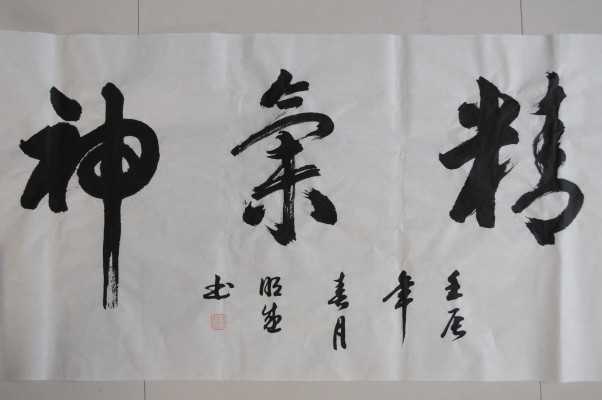 精氣神
壬辰
年
春月
昭
书